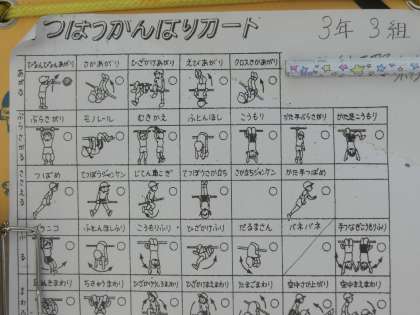 てつぼうがんばりカード 3年3組
あがる ぴょんぴょんあがり さかあがり ひざかけあがり えびあがり クロスさかあがり
ぶらさがる ぶらさがり モノレール むきかえ ふとんほし こうもり かた手ぶらさがり かた足こうもり
ささえる つばめ てつぼうジャンケン じてん車こぎ てつぼうさか立ち さか立ちジャンケン かた手つばめ
ふとんほしふり こうもりふり ひざかけふり だるまさん バネバネ 手つなぎこうもりふり
ちきゅうまわり ひざかけうしろまわり ひざかけまえまわり たまごまわり 空中さか上がり 空中まえまわり